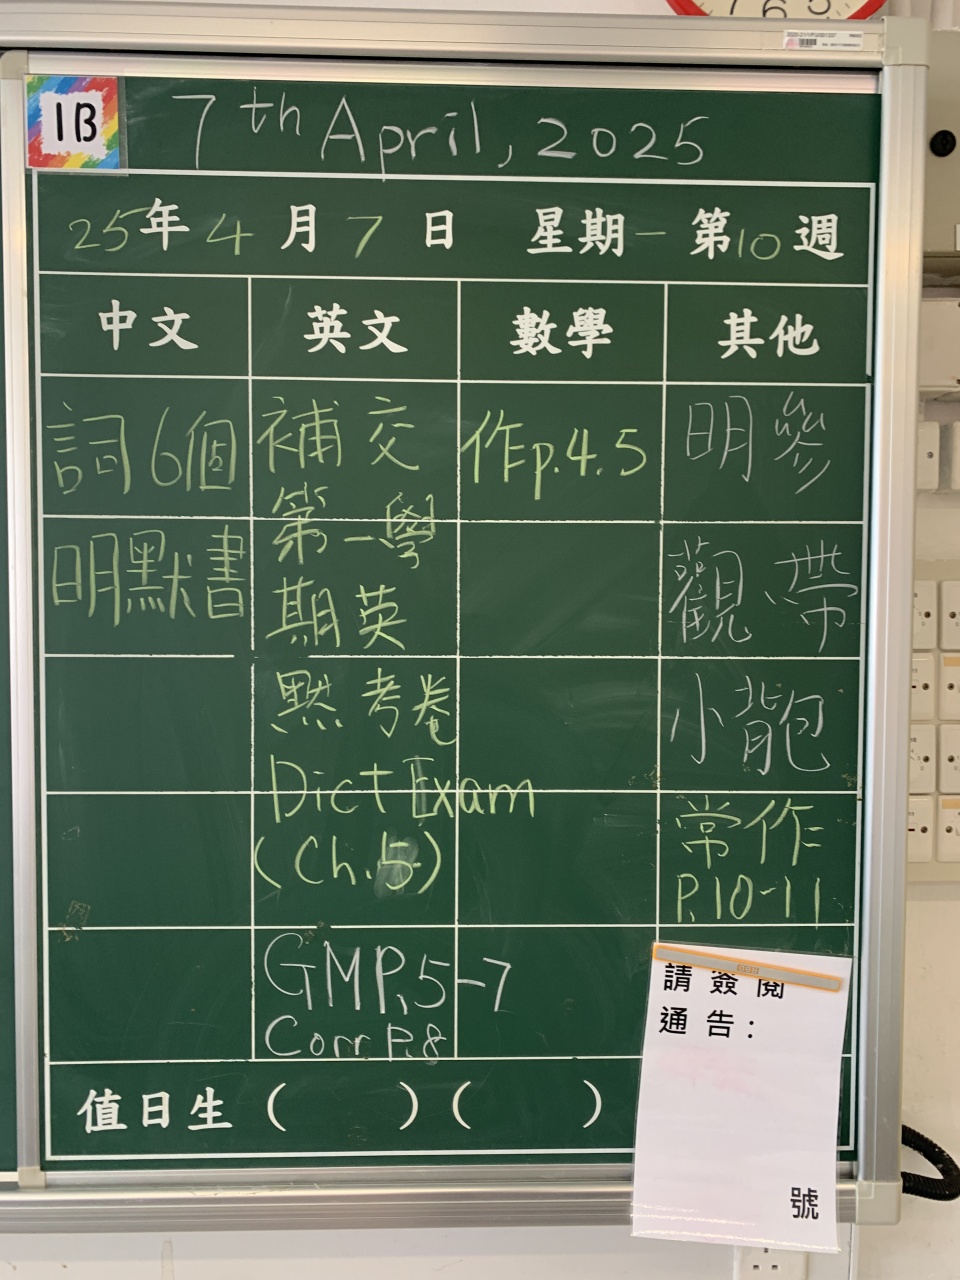 7 6 5
1B
7th April, 2025
25年4月7日 星期一 第10週
中文 英文 數學 其他
詞6個
明默書
補交
第一學
期英
默考卷
Dict Exam
(Ch.5)
GMP.5-7
Corr P.8
作p.4.5
明參
觀、帶
小背包
常作
P.10-11
請簽閱
通告:
號
值日生 ( ) ( )